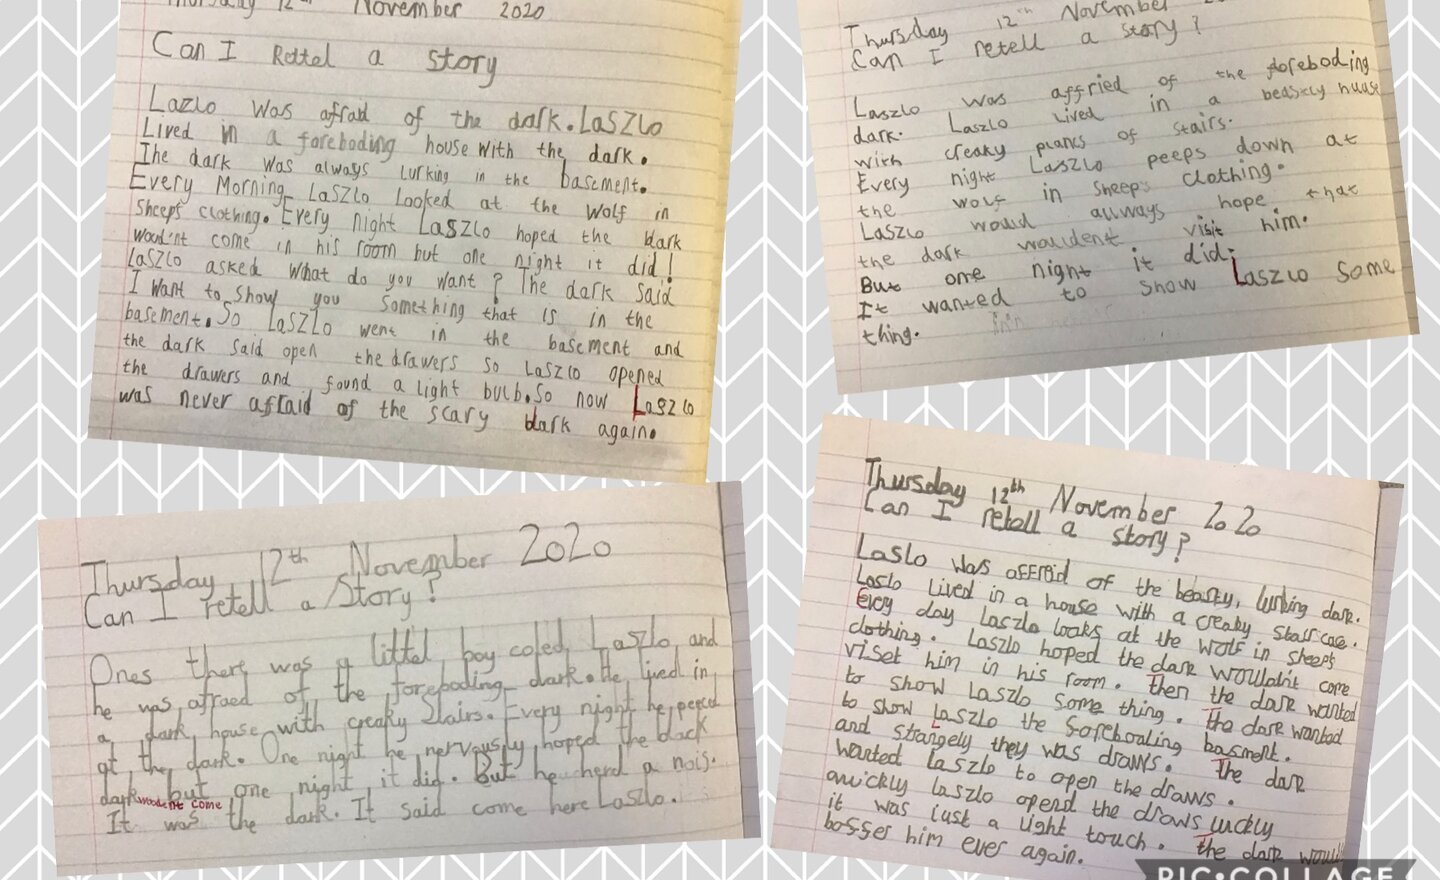 Thursday 12th November 2020
Can I Rettel a story
Lazlo was afraid of the dark. Laszlo
Lived in a foreboding house with the dark.
The dark was always lurking in the basement.
Every Morning Laszlo Looked at the wolf in
sheeps clothing. Every night Laszlo hoped the dark
woudn't come in his room but one night it did!
Laszlo asked what do you want? The dark said
I want to show you something that is in the
basement. So Laszlo went in the basement and
the dark said open the drawers so Laszlo opened
the drawers and found a light bulb. So now Laszlo
was never afraid of the scary dark again.
Thursday 12th November
Can I retell a story?
Laszlo was affried of the foreboding
dark. Laszlo lived in a beaskly huase
with creaky plancs of stairs.
Every night Laszlo peeps down at
the wolf in sheeps clothing.
Laszlo would allways hope that
the dark wouldent visit him.
But one night it did.
It wanted to show Laszlo some
thing.
Thursday 12th November 2020
Can I retell a Story?
Ones there was a littel boy coled Laszlo and
he was afraed of the foreboding dark. He lived in
a dark house with creaky stairs. Every night he peeced
at the dark. One night he nervously hoped the black
dark woodent come but one night it did. But he herd a nois.
It was the dark. It said come here Laszlo.
Thursday 12th November 2020
Can I retell a story?
Laslo was affraid of the beasty, lurking dark.
Laslo Lived in a house with a creaky staircase.
Every day Laszlo looks at the wolf in sheep's
clothing. Laszlo hoped the dark wouldn't come
viset him in his room. then the dark wanted
to show Laszlo some thing. the dark wanted
to show Laszlo the foreboding basment.
and strangely they was draws. The dark
wanted Laszlo to open the draws.
quickly Laszlo opend the draws luckly
it was just a light touch. the dark
bosser him ever again.
PIC•COLLAGE